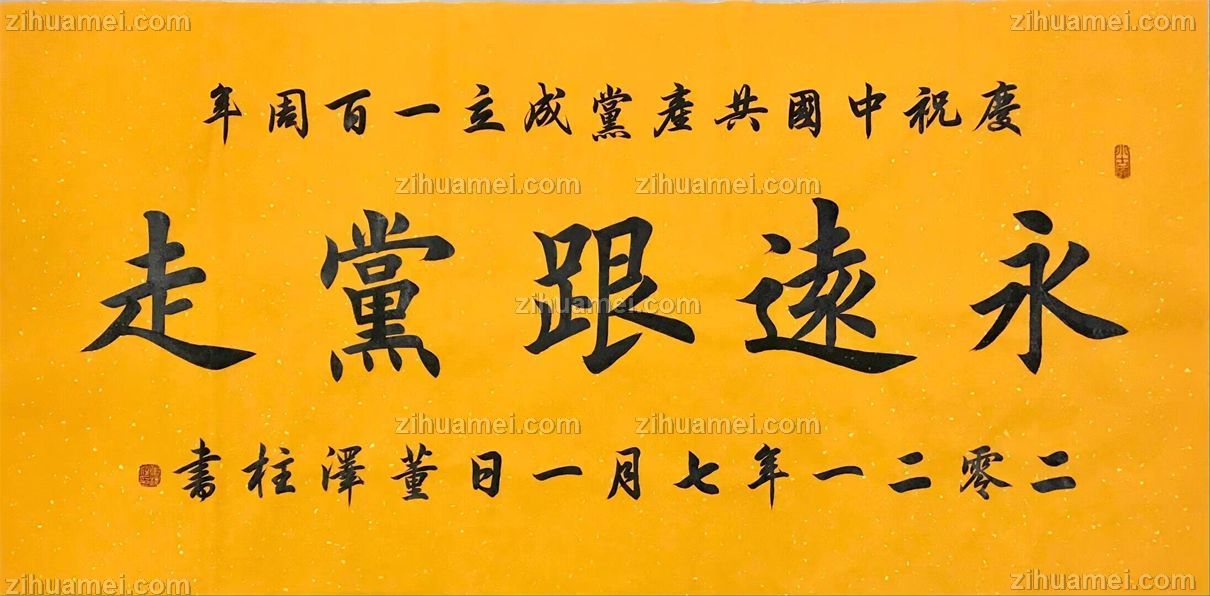 zihuamei.com zihuamei.com
慶祝中國共產黨成立一百周年
zihuamei.com zihuamei.com
永遠跟黨走
zihuamei.com
zihuamei.com zihuamei.com
二零二一年七月一日董澤柱書
zihuamei.com zihuamei.com